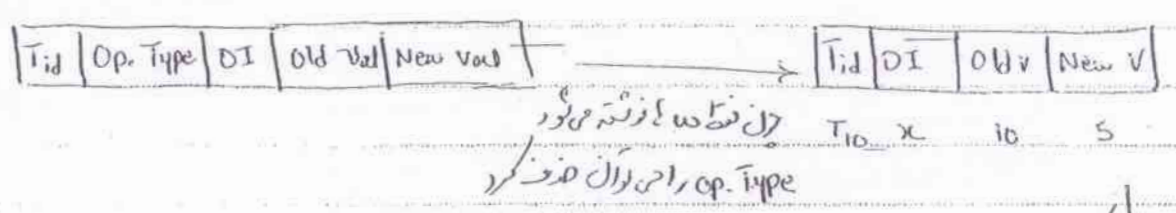 Tid | Op. Type | DI | Old Val | New Val → Tid | DI | Old v | New V
T10 x 10 5
چون فقط ها نوشته می‌شود
Op. Type را می‌توان حذف کرد